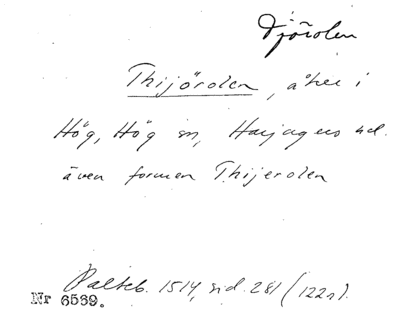 Djörolen
Thijörolen, åker i
Hög, Hög sn, Harjagers hd.
även formen Thijerolen
Palteb. 1514, sid. 281 (122r).
Nr 6569.